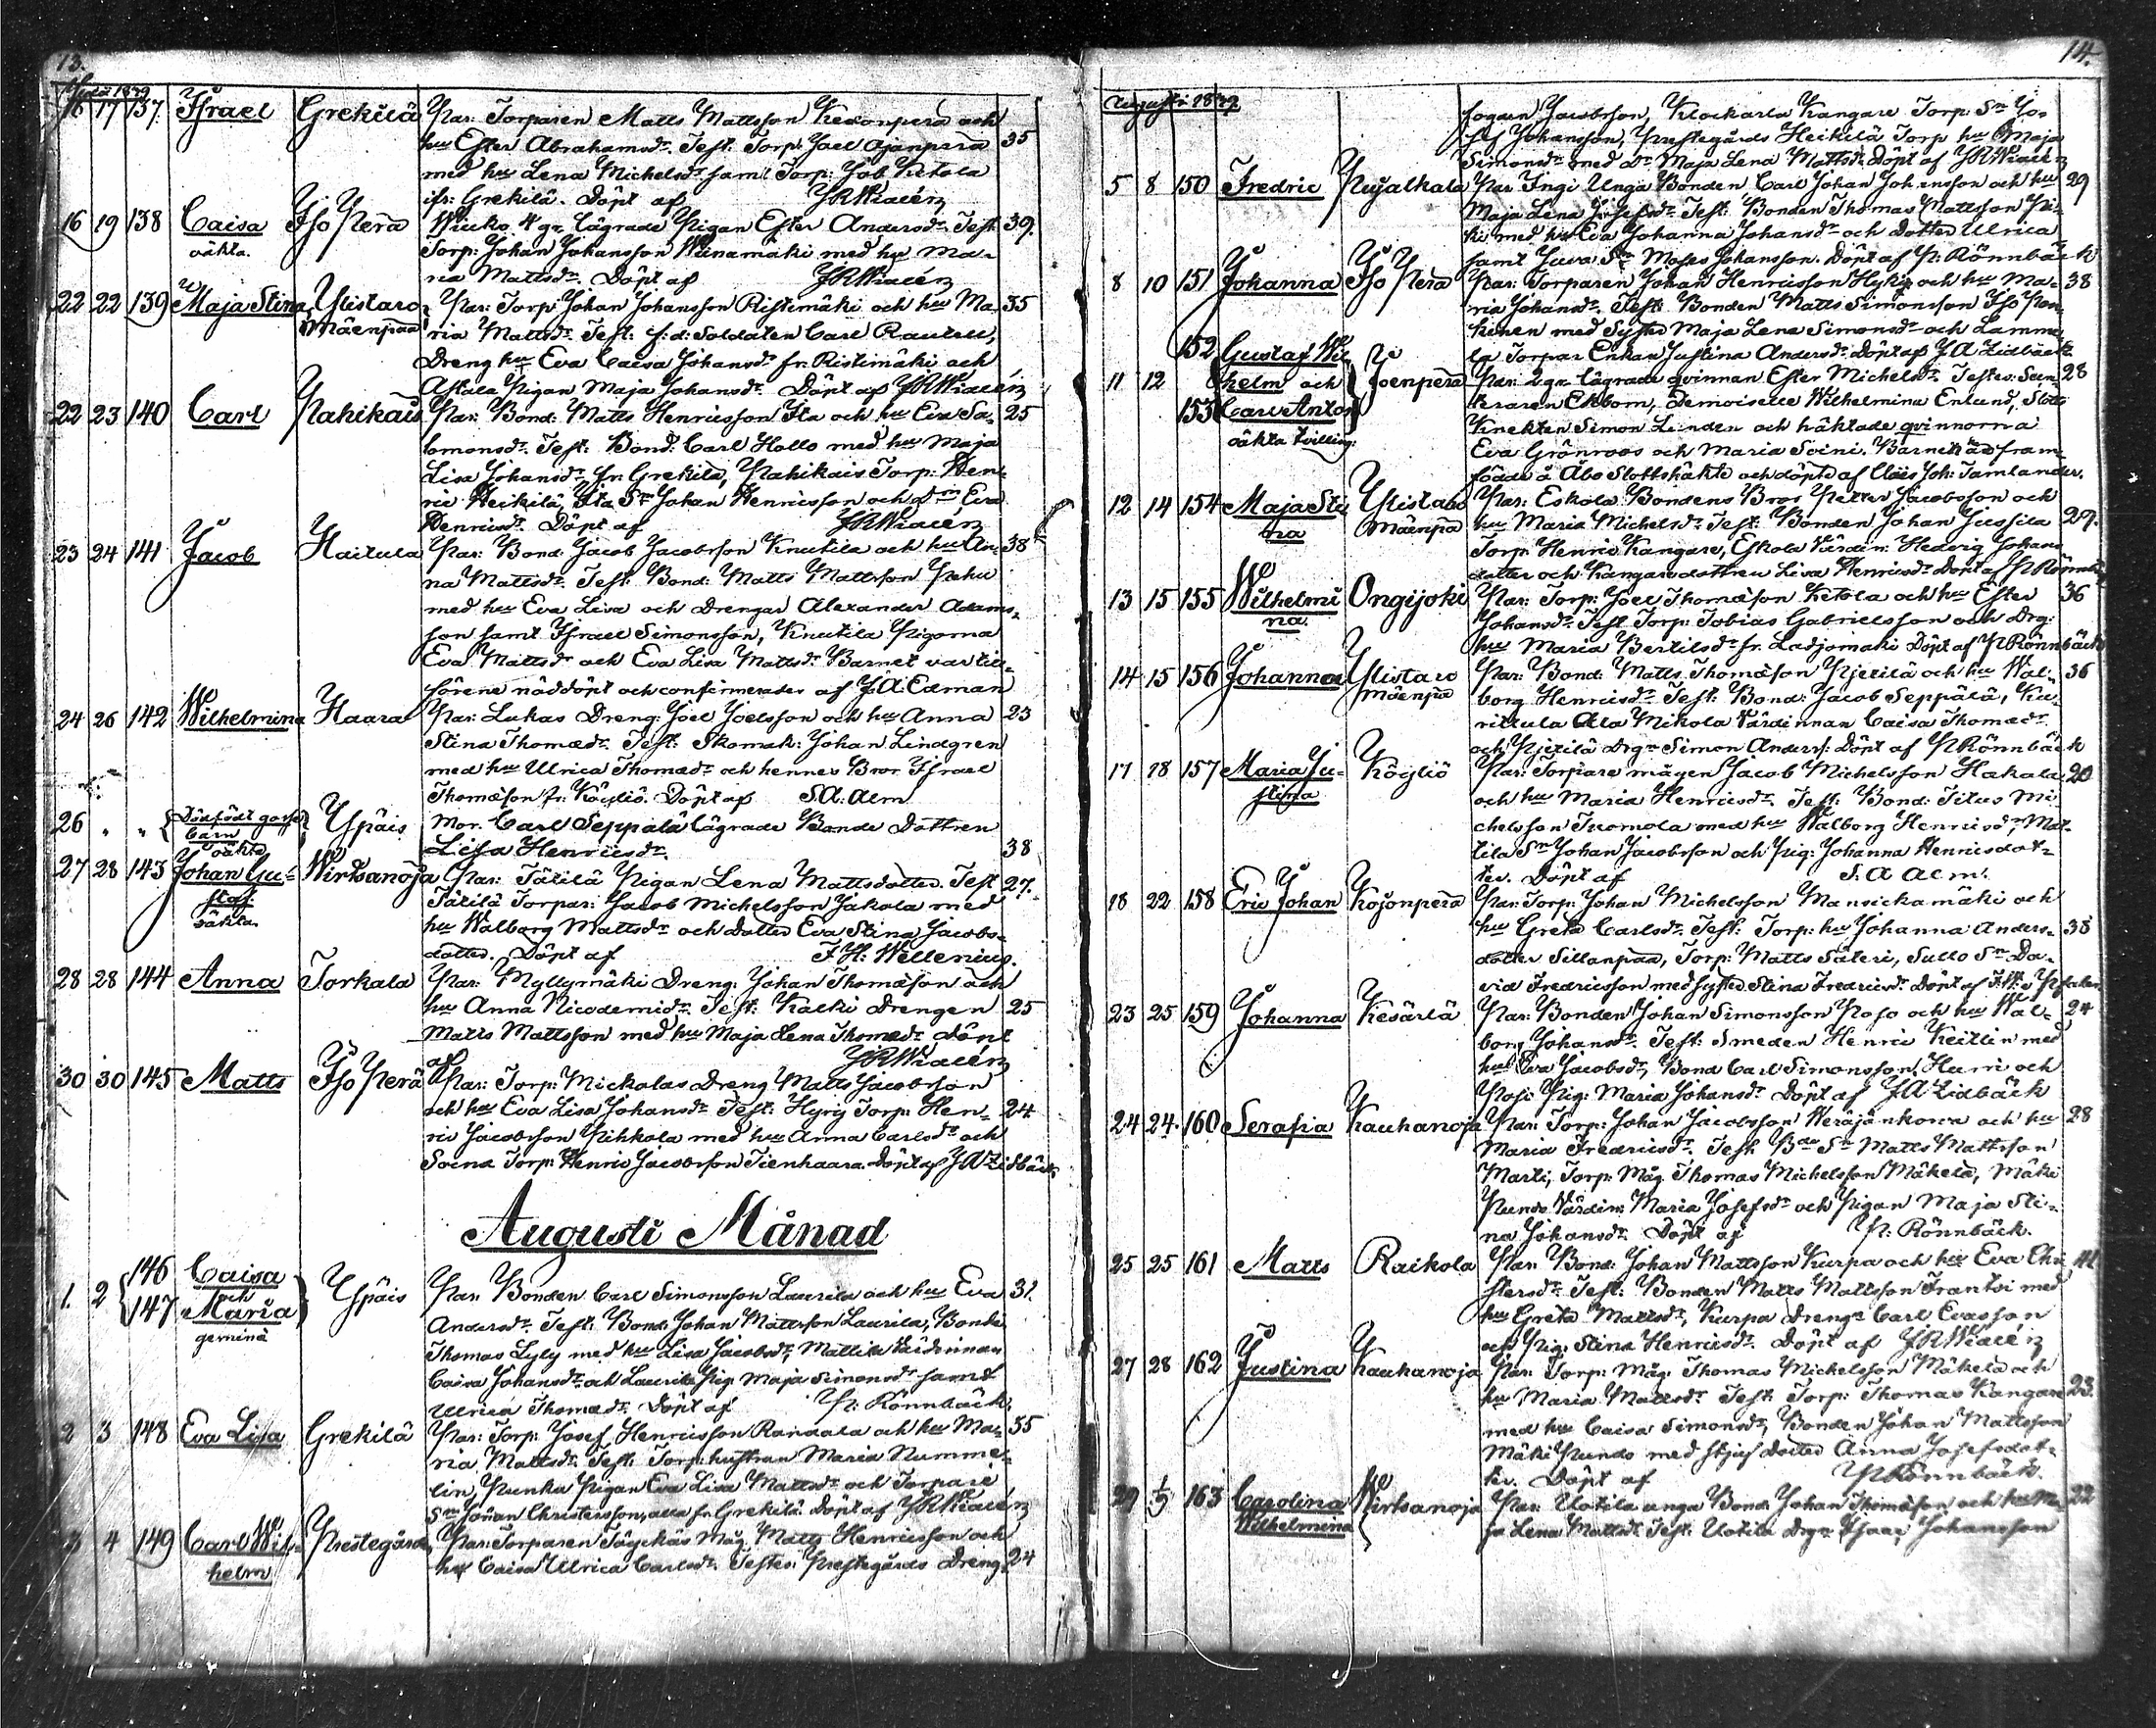 13.
Julii 1829
16 17 137. Israel Grekilä Par: Torparen Matts Mattsson Keconperä och
hu Ester Abrahamsdr. Test. Torp: Joel Ajanperä 35
med hu Lena Michelsdr samt Torp: Job Ketola
ifr: Grekilä. Döpt af JRWiacén
16 19 138 Caisa Iso Perä Wiuko 4 gr. lägrade Pigan Ester Andersdr. Test 39.
oäkta. Torp: Johan Johansson Wiinamäki med hu Ma-
ria Mattsdr. Döpt af JRWiacén
22 22 139 Maja Stina Ylistaro Par: Torp: Johan Johansson Ristimäki och hu Ma- 35
Mäenpää ria Mattsdr. Test. f:d: Soldaten Carl Rautell,
Dreng hu Eva Caisa Johansdr fr. Ristimäki och
Astala Pigan Maja Johansdr. Döpt af JRWiacén
22 23 140 Carl Pahikais Par: Bond: Matts Henricsson Ila och hu Eva Sa- 25
lomonsdr. Test. Bond: Carl Hollo med hu Maja
Lisa Johansdr, fr. Grekilä, Pahikais Torp: Hen-
ric Heikilä, Ila Sn Johan Henricsson och Dn Eva
Henricsdr. Döpt af JRWiacén
23 24 141 Jacob Haitula Par: Bond. Jacob Jacobsson Knutila och hu An- 38
na Mattsdr. Test. Bond: Matts Mattsson Pehu
med hu Eva Lisa och Drengar Alexander Adams-
son samt Israel Simonsson, Knutila Pigorna
Eva Mattsdr och Eva Lisa Mattsdr. Barnet var till-
förene nöddöpt och confirmerades af J.A. Edman
24 26 142 Wilhelmina Haara Par: Lukas Dreng: Joel Joelsson och hu Anna 23
Stina Thomædr. Test: Skomak: Johan Lindgren
med hu Ulrica Thomædr och hennes Bror Israel
Thomæsson fr: Köyliö. Döpt af S.A. Alm
26 " " Dödfödt gosse Ypäis Mor. Carl Seppälä lägrade Bonde Dottren
barn
oäkta Lisa Henricsdr. 38
27 28 143 Johan Gu- Wirtsanoja Par: Tätilä Pigan Lena Mattsdotter. Test 27.
staf. Tätilä Torpar: Jacob Michelsson Jakola med
oäkta. hu Walborg Mattsdr och dotter Eva Stina Jacobs-
dotter. Döpt af F.H: Wellenius.
28 28 144 Anna Torkala Par: Myllymäki Dreng: Johan Thomæson och
hu Anna Nicodemidr. Test: Kalki Drengen 25
Matts Mattsson med hu Maja Lena Thomædr döpt
af JRWiacén
30 30 145 Matts Iso Perä Par: Torp: Mickolas Dreng Matts Jacobsson
och hu Eva Lisa Johansdr Test: Hyrij Torp: Hen- 24
ric Jacobsson Pihkola med hu Anna Carlsdr och
Soina Torp: Henric Jacobsson Tienhaara. Döpt af J A Lidbäck
Augusti Månad
146 Caisa
1. 2 och Ypäis Par: Bonden Carl Simonsson Laurila och hu Eva 31.
147 Maria Andersdr. Test: Bond: Johan Mattsson Laurila, Bonde
gemina Thomas Lyly med hu Lisa Jacobsdr, Mattila Värdinnan
Caisa Johansdr. och Laurila Pig: Maja Simonsdr samt
Ulrica Thomædr. Döpt af P: Rönnbäck.
2 3 148 Eva Lisa Grekilä Par: Torp: Josef Henricsson Randala och hu Ma- 35
ria Mattsdr. Test: Torp: hustrun Maria Numme-
lin, Punka Pigan Eva Lisa Mattsdr och Torpare
Sn Johan Christersson, alla fr. Grekilä. Döpt af JRWiacén
3 4 149 Carl Wil- Prestegårds Par: Torparen Täyckäs Måg Matts Henricsson och
helm hu Caisa Ulrica Carlsdr. Testes: Prestegårds Dreng 24
14.
Augusti 1829.
fogaen Jacobsson, Klockarla Kangare Torp: Sn Jo-
sef Johansson, Prestegårds Heikilä Torp hu Maja
Simonsdr med dr Maja Lena Mattsdr. Döpt af JRWiacén
5 8 150 Fredric Pujalkala Par. Ingi Unga Bonden Carl Johan Johansson och hu 29
Maja Lena Josefsdr. Test: Bonden Thomas Mattsson Pi-
ki med hu Eva Johanna Johansdr och dotter Ulrica
samt Juva Sn Moses Johansson. Döpt af P. Rönnbäck
8 10 151 Johanna Iso Perä Par: Torparen Johan Henricsson Hykiö och hu Ma- 38
ria Johansdr. Test: Bonden Matts Simonsson Iso Pen-
kinen med Syster Maja Lena Simonsdr och Lamme
152 Gustaf Wil la Torpar Enkan Justina Andersdr. Döpt af J A Lidbäck
11 12 helm och Joenperä Par: 2 gr. lägrade qvinnan Ester Michelsdr. Testes: Sun- 28
153 Carl Anton keraren Ekbom, Demoiselle Wilhelmina Enlund, Slotts
oäkta tvilling: Knekten Simon Linden och häktade qvinnorna
Eva Grönroos och Maria Soini. Barnen äro fram-
födde å Åbo Slottshäkte och döpte af Claës Joh: Jamlander.
12 14 154 Maja Sti Ylistaro Par: Eskola Bondens Bror Petter Jacobsson och
na Mäenpää hu Maria Michelsdr. Test: Bonden Johan Jussila 27.
Torp: Henric Kangare, Eskola Värdin: Hedvig Johans
dotter och Kangare dottren Lisa Henricsdr. Döpt af P Rönnbäck
13 15 155 Wilhelmi Ongijoki Par: Torp: Joel Thomæson Ketola och hu Ester 36
na. Johansdr. Test Torp: Tobias Gabrielsson och Drg:
hu Maria Bertilsdr fr. Ladjomäki Döpt af P Rönnbäck
14 15 156 Johanna Ylistaro Par: Bond: Matts Thomæson Pietilä och hu Wal- 36
Mäenpää borg Henricsdr. Test: Bond: Jacob Seppälä, Ku-
rittula Ala Mikola Värdinnan Caisa Thomædr
och Pietilä Drgn Simon Anders: Döpt af P Rönnbäck
17 18 157 Maria Ju- Köyliö Par: Torpare mågen Jacob Michelsson Hakala 20
stina och hu Maria Henricsdr. Test: Bond: Titus Mi-
chelsson Tuomola med hu Walborg Henricsdr, Mat-
tila Sn Johan Jacobsson och Pig: Johanna Henricsdot-
ter. Döpt af S. A Alm.
18 22 158 Eric Johan Kojonperä Par: Torp: Johan Michelsson Mansickamäki och
hu Greta Carlsdr. Test: Torp: hu Johanna Anders- 35
dotter Sillanpää, Torp: Matts Säteri, Sullo Sn Da-
vid Fredricsson med syster Stina Fredricsdr. Döpt af
23 25 159 Johanna Kesärlä Par: Bonden Johan Simonsson Poso och hu Wal- 24
borg Johansdr. Test: Smeden Henric Keitlin med
hu Eva Jacobsdr, Bond Carl Simonsson Harri och
Poso Pig: Maria Johansdr. Döpt af J A Lidbäck
24 24. 160 Serafia Kauhanoja Par: Torp: Johan Jacobsson Weräjänkorva och hu 28
Maria Fredricsdr. Test: Bde Sn Matts Mattsson
Marti, Torp: Måg. Thomas Michelsson Mäkelä, Mäki
Punds Värdin: Maria Josefsdr och Pigan Maja Sti-
na Johansdr. Döpt af P: Rönnbäck.
25 25 161 Matts Raikola Par: Bond: Johan Mattsson Kurpa och hu Eva Chri 41
stersdr. Test: Bonden Matts Mattsson Frantsi med
hu Greta Mattsdr, Kurpa Drengn Carl Evasson
och Pig: Stina Henricsdr. Döpt af JRWiacén
27 28 162 Justina Kauhanoja Par: Torp: Måg: Thomas Michelsson Mäkelä och
hu Maria Mattsdr. Test: Torp: Thomas Kangare 23.
med hu Caisa Simonsdr, Bonden Johan Mattsson
Mäki Punds med stjufdotter Anna Josefsdot-
ter. Döpt af P Rönnbäck.
29 1/9 163 Carolina Wirtsanoja Par: Uotila unga Bond: Johan Thomæson och hu Ma- 22
Wilhelmina ja Lena Mattsdr. Test: Uotila Drgn Isaac Johansson